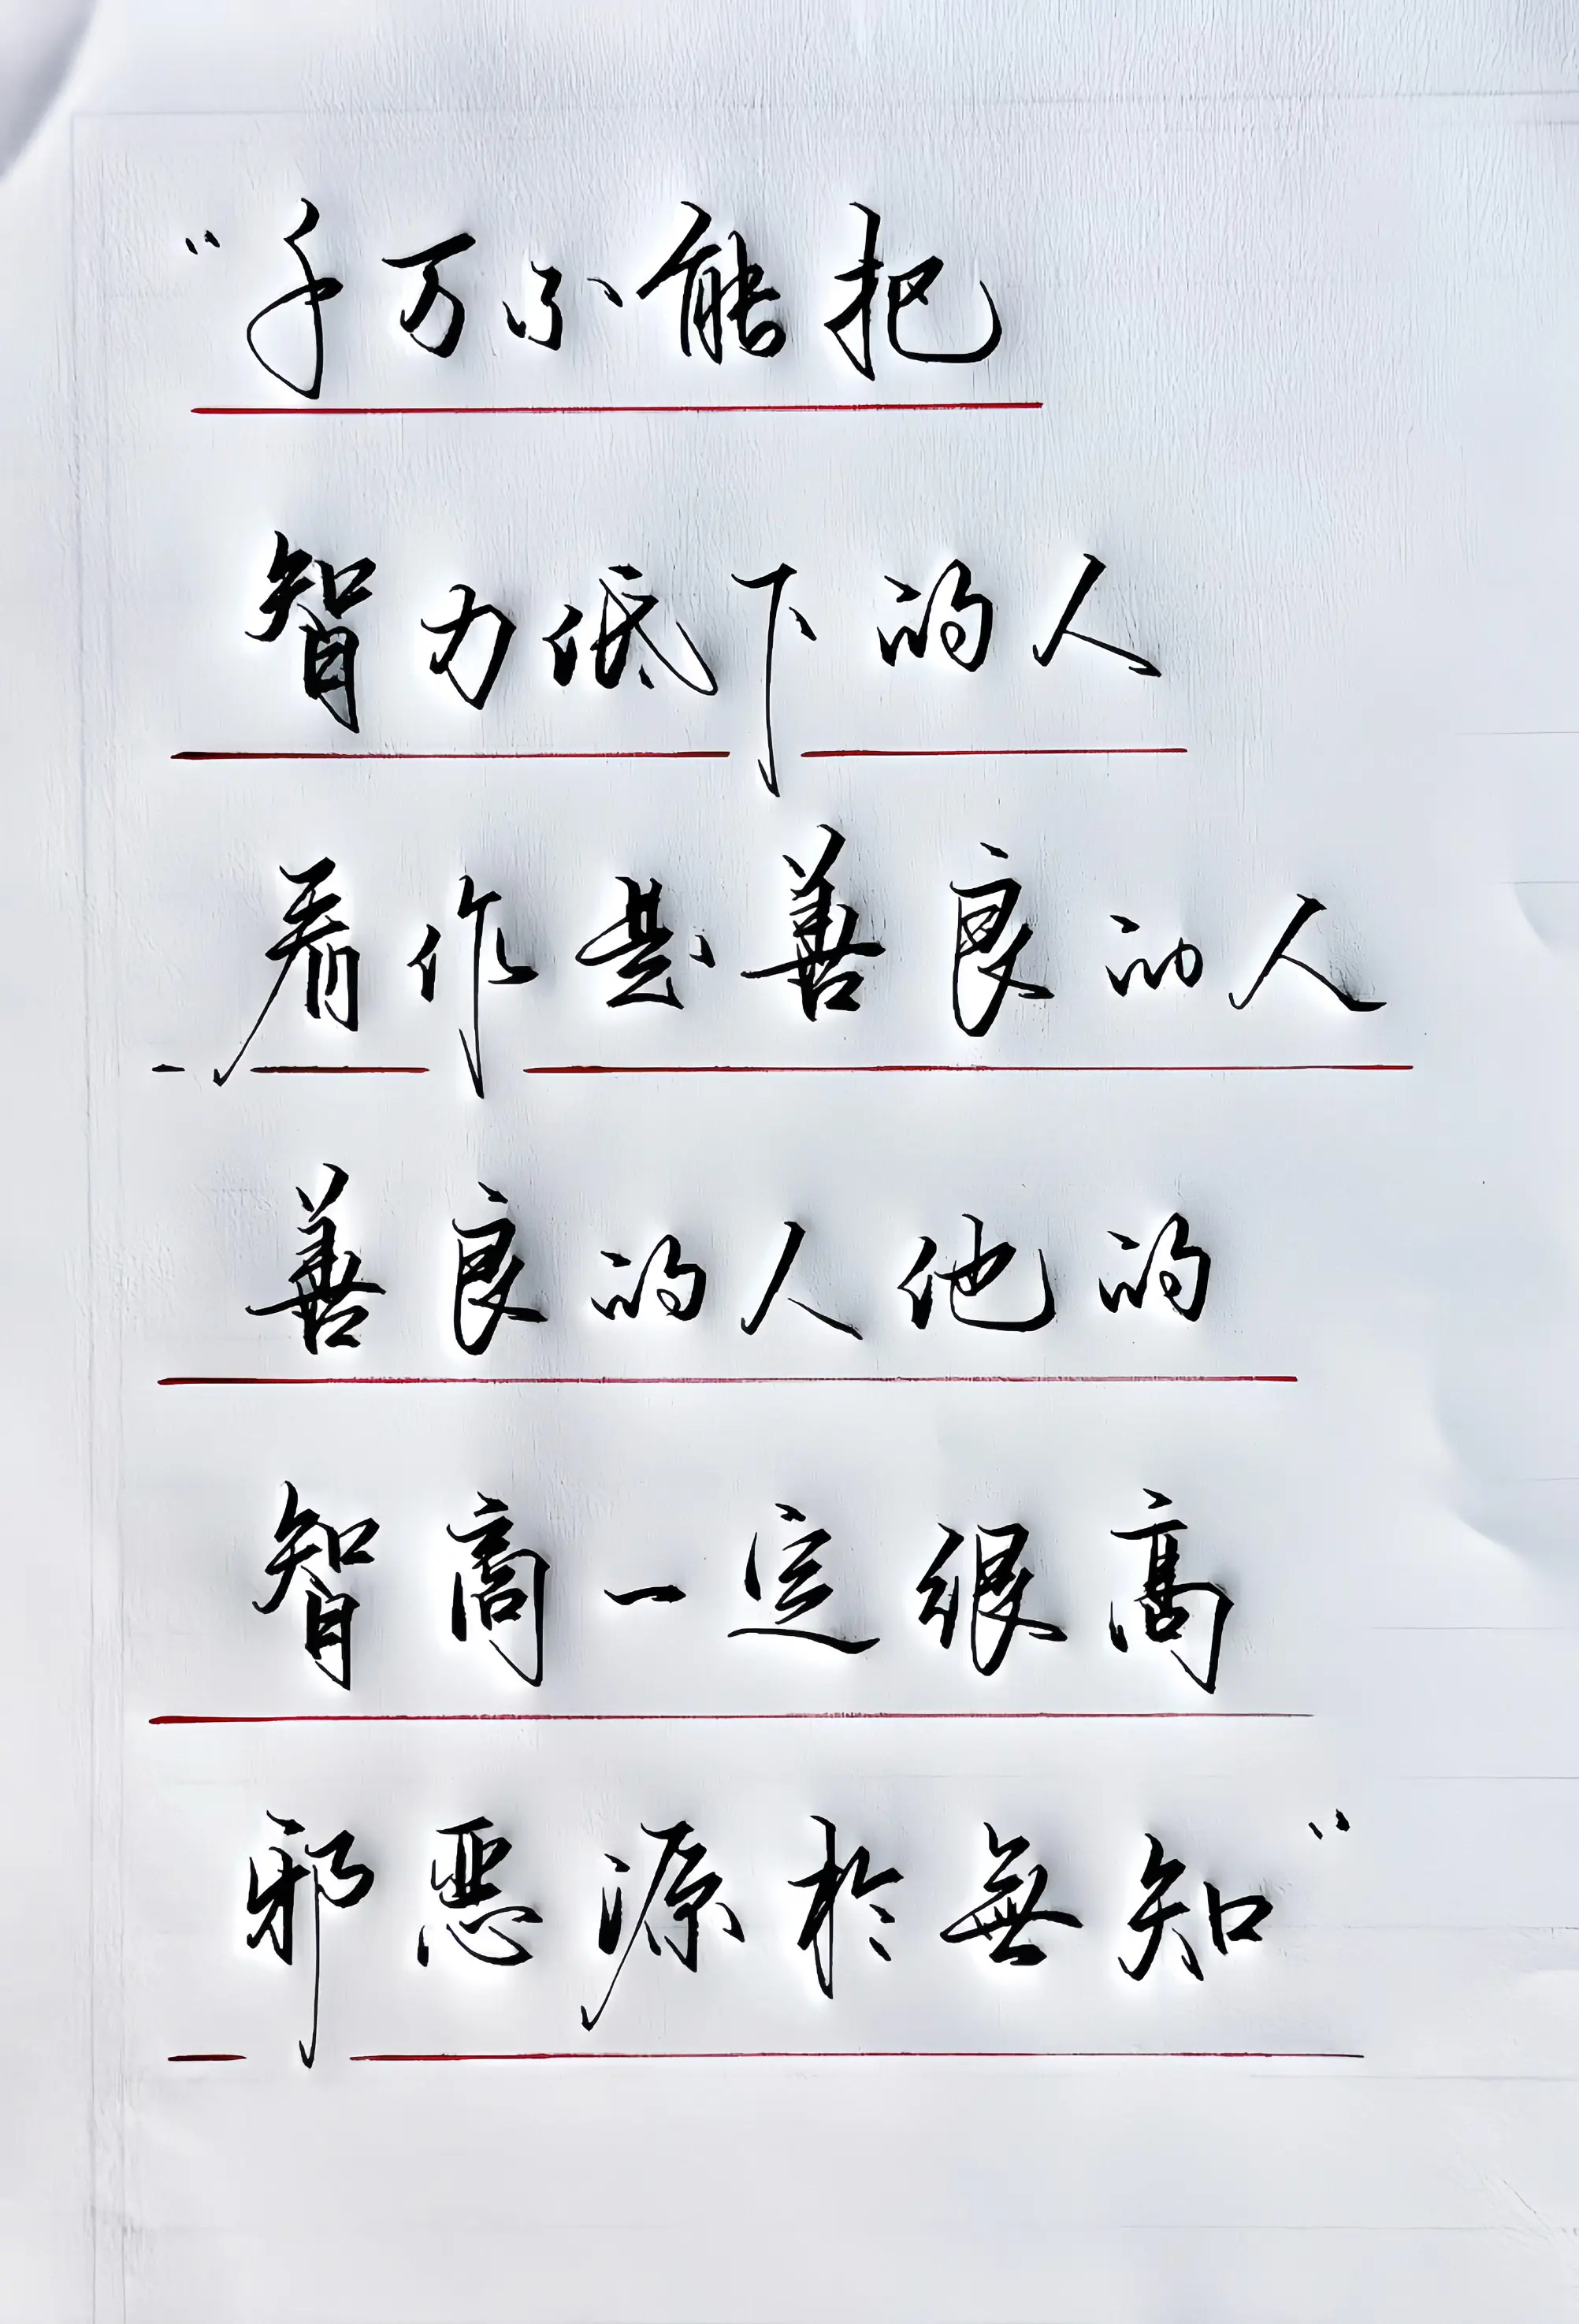 “千万不能把
智力低下的人
看作是善良的人
善良的人他的
智商一定很高
邪恶源於無知”